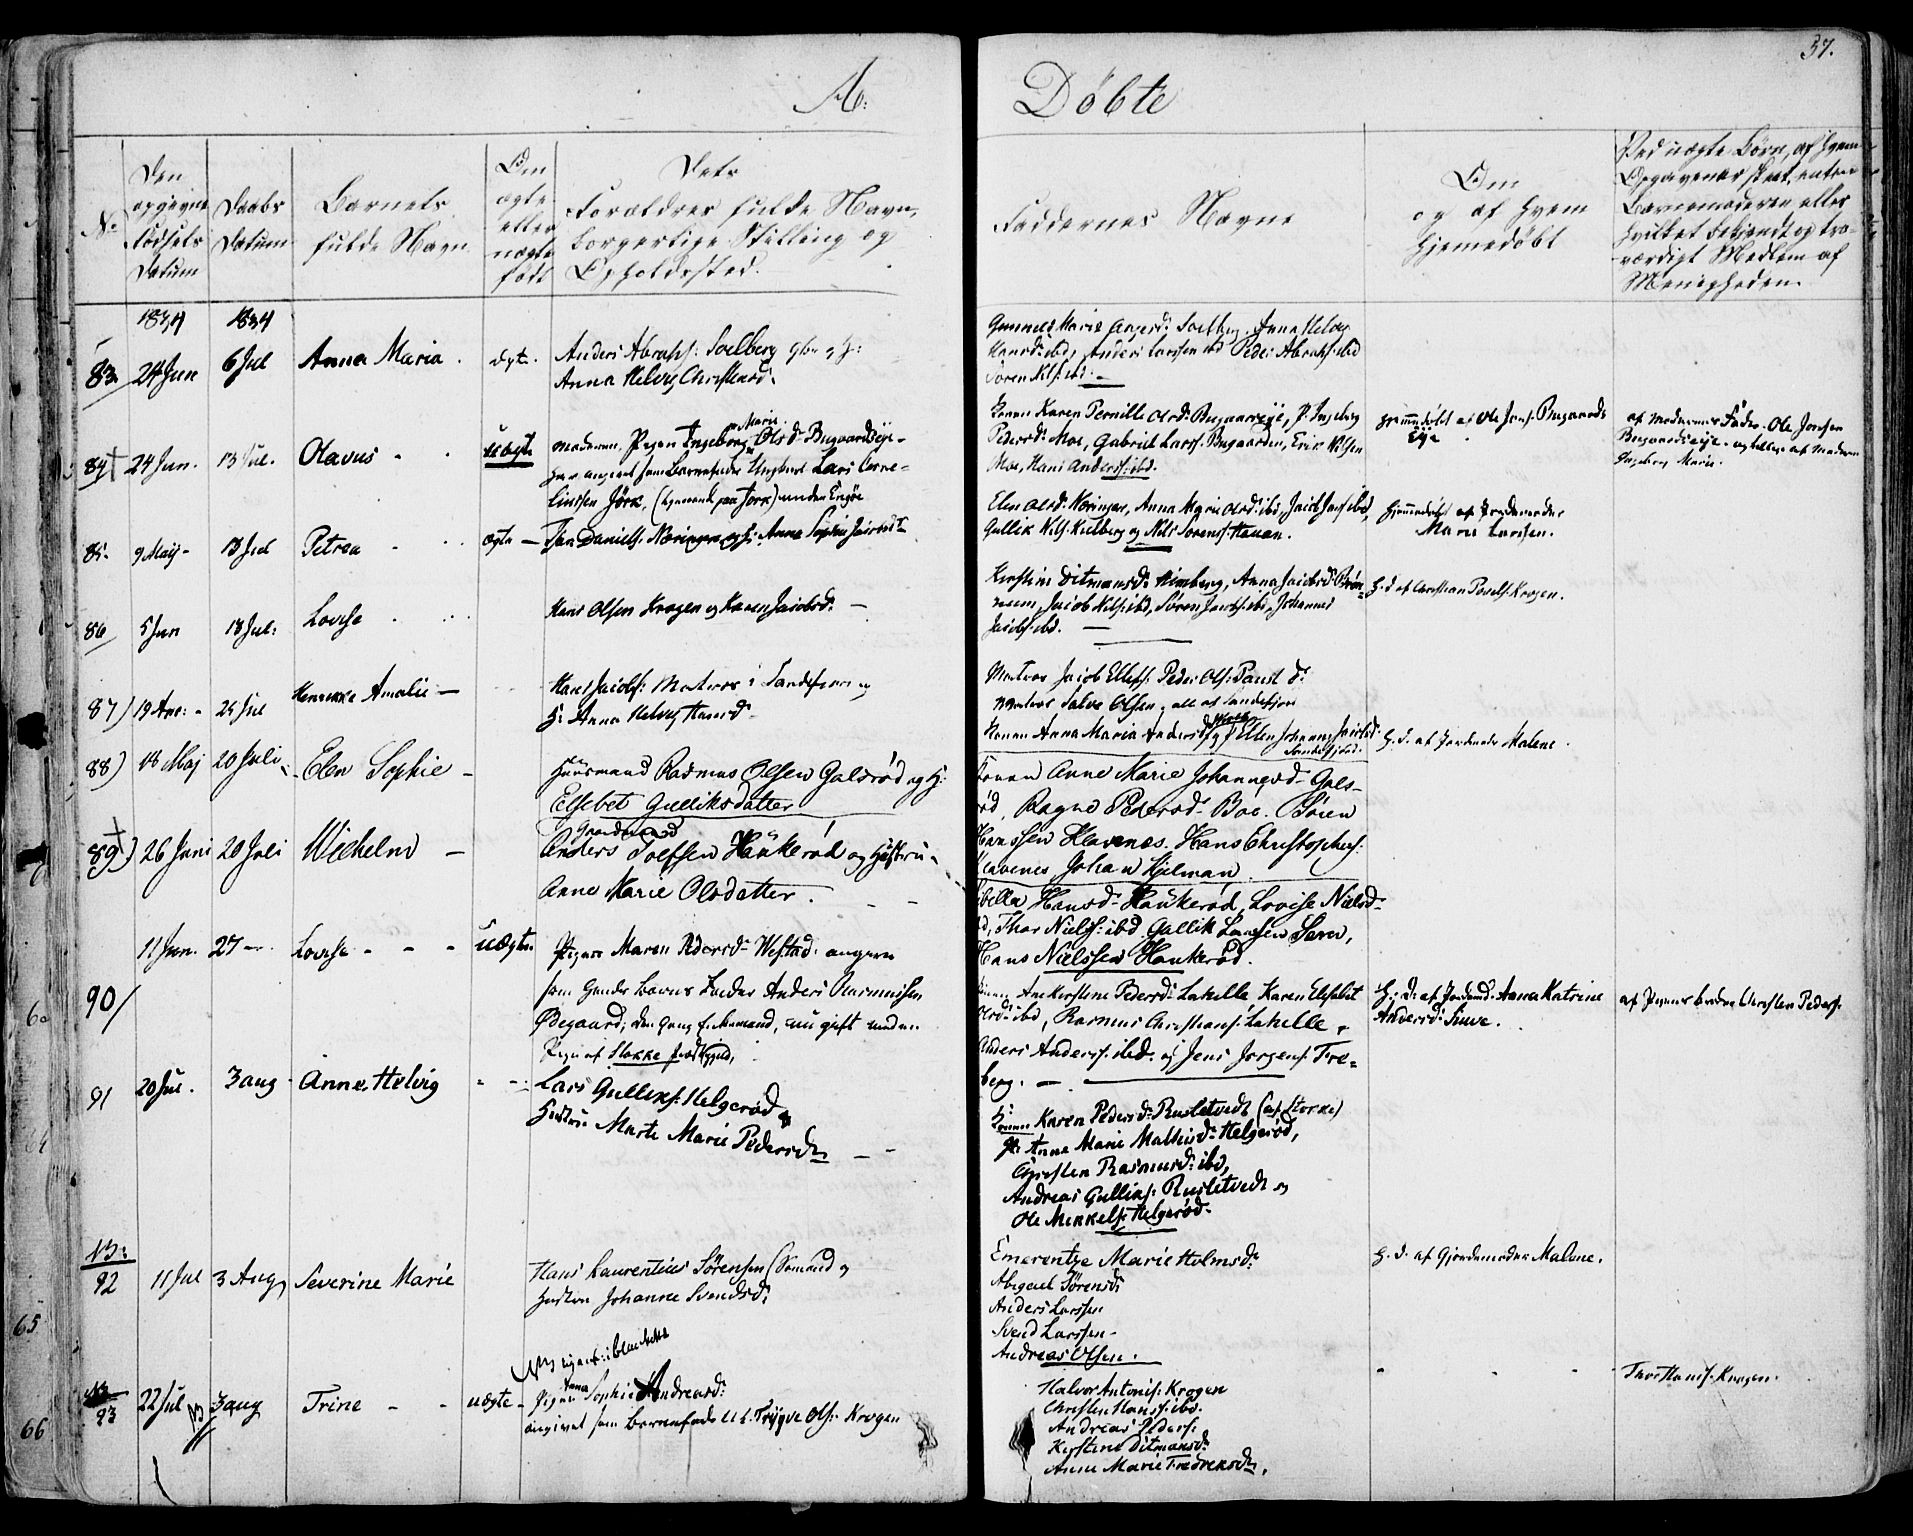 57.
A: Döbte
No
Den opgivne Födsels Datum
Daabs Datum
Barnets fulde Navn
Om ægte eller uægte födt
Dets Forældres fulde Navn, borgerlige Stilling og Opholdssted.
Faddernes Navne
Om og af hvem hjemedöbt
Ved uægte Börn, af hvem Opgaven er skeet, enten Barnemoderen eller hvilket bekjendt og troværdigt Medlem af Menigheden.
1834 1834
83 24 Jun 6 Jul Anna Maria . ægte.
Anders Abrahs: Soelberg
Anna Helvig Christensd:
Hansd: ibd, Anders Larssen ibd Peder Abrahs: ibd
Sören Nils: ibd. —
84 † 24 Jun. 13 Jul. Olavus - uægte
Moderen Pigen Ingeborg Marie Olsd: Bugaardseje -
har angivet som Barnefader Ungkarl Lars Corne-
liussen Jörk,
Konen Karen Pernille Olsd: Bugaardeje, P. Ingeborg
Pedersd: Moe, Gabriel Larss: Bugaarden, Erik Nilsen
Moe, Hans Anderss: ibd.
hjemmedöbt af Ole Jons: Bugaards
Eje
af Moderens Fader Ole Jonsen
Bugaardseje - og tillige af Moderen
Ingeborg Marie.
85. 9 Maij - 13 Jul Petrea - ægte —
Jan Daniels: Næringen og H: Anna Sophie Jacobsd:
Elen Olsd: Næringen, Anna Marie Olsd: ibd, Jacob Jans: ibd,
Gullik Nils: Kielberg og Nils Sorens: Haven.
hjemmedöbt af Jordemoder
Marie Larssen.
86 5 Jun 13 Jul: Lovise
Hans Olsen Krogen og Karen Jacobsd: —
Kirstine Ditmansd: Kimberg, Anna Jacobsd:
Jacob Nils: ibd, Sören Jacobs: ibd, Johannes
Jacobs: ibd. —
H: d af Christian Povels: Krogen.
87) 19 Apr: - 25 Jul Henrikke Amalie —
Hans Jacobs: Matros i Sandefjord og
H: Anna Helvig Hansd -
Matros Jacob Ellefs: Peder Ols:
Matros Salve Olsen, alle af Sandefjord
Konen Anna Maria Andersd: og P. Ellen Johanne Jacobsd:
Sandefjord.
H. d. af Jordemoder Malene.
88) 18 Maj 20 Juli Elen Sophie -
Huusmand Rasmus Olsen Galsröd og H:
Elsebet Gulliksdatter
Konen Anne Marie Johannesd: Gals-
röd, Ragne Pedersd: Boe. Sören
Hanssen Klavenes. Hans Christophers:
Klavenes Johan Hjelman.
89†) 26 Juni 20 Juli Wilhelm —
Gaardmand
Anders Toefsen Haukeröd og Hustru
Anne Marie Olsdatter.
Hansd: Haukeröd, Lovise Nielsd:
ibd, Thor Nielss: ibd Gullik Larssen
Hans Nielssen Haukeröd.
90/ 11 Jun. 27 — Lovise - - - uægte.
Pigen Maren Pedersd: Westad: angiven
som hendes Barns Fader Anders Rasmussen
Ödegaard, den Gang Enkemand, nu gift med en
Pige af Stokke Præstegjeld,
Konen Ane Kirstine Pedersd: Lahelle Karen Elsebet
Olsd: ibd, Rasmus Christians: Lahelle,
Anders Anderss: ibd. og Jens Jorgens: Fre-
berg. —
H: d: af Jordemd: Anna Katrine
Andersd:
af Pigens broder Christen Peders:
91 20 Jul. 3 aug Anne Helvig
Lars Gulliks: Helgeröd og
Hustru Marte Marie Pedersd:
H:
Konen Karen Pedersd: Rustetvedt (af Stokke)
P: Anne Marie Mathisd: Helgeröd,
Christen Rasmusd: ibd,
Andreas Gulliks: Rustetvedt og
Ole Mikkels: Helgeröd.
NB:
92 11 Jul 3 Aug Severine Marie
Hans Laurentius Sörensen (Sömand og
Hustru Johanne Svendsd:
Emerentze Marie Holmsd:
Abigael Sörensd:
Anders Larssen
Svend Larssen -
Andreas Olsen.
H. d. af Gjordemoder Malene.
93 22 Jul 3 aug Trine - - uægte -
NB
Pigen Anna Sophie Andreasd:
angivet som Barnefader U.k. Trygve Ols: Krogen
Halvor Antonis: Krogen
Christen Hans: ibd.
Andreas Peders:
Kirstine Ditmansd:
Anne Marie Fredriksd:.
Thor Hans: Krogen.
60
64
65
66